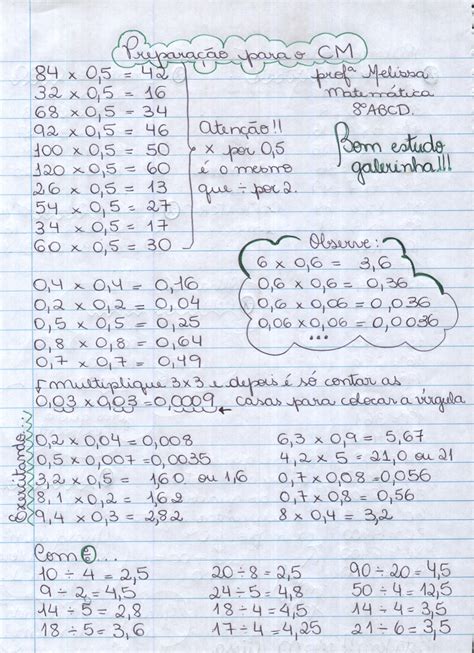 Preparação para o CM
profª Melissa
Matemática
8ºABCD.
Bom estudo
galerinha!!!
84 x 0,5 = 42
32 x 0,5 = 16
68 x 0,5 = 34
92 x 0,5 = 46
100 x 0,5 = 50
120 x 0,5 = 60
26 x 0,5 = 13
54 x 0,5 = 27
34 x 0,5 = 17
60 x 0,5 = 30
Atenção!!
x por 0,5
é o mesmo
que ÷ por 2.
Observe:
6 x 0,6 = 3,6
0,6 x 0,6 = 0,36
0,6 x 0,06 = 0,036
0,06 x 0,06 = 0,0036
...
0,4 x 0,4 = 0,16
0,2 x 0,2 = 0,04
0,5 x 0,5 = 0,25
0,8 x 0,8 = 0,64
0,7 x 0,7 = 0,49
multiplique 3x3 e depois é só contar as
0,03 x 0,03 = 0,0009 ← casas para colocar a vírgula
Exercitando...
0,2 x 0,04 = 0,008
0,5 x 0,007 = 0,0035
3,2 x 0,5 = 1,60 ou 1,6
8,1 x 0,2 = 1,62
9,4 x 0,3 = 2,82
6,3 x 0,9 = 5,67
4,2 x 5 = 21,0 ou 21
0,7 x 0,08 = 0,056
0,7 x 0,8 = 0,56
8 x 0,4 = 3,2
Com ÷...
10 ÷ 4 = 2,5
9 ÷ 2 = 4,5
14 ÷ 5 = 2,8
18 ÷ 5 = 3,6
20 ÷ 8 = 2,5
24 ÷ 5 = 4,8
18 ÷ 4 = 4,5
17 ÷ 4 = 4,25
90 ÷ 20 = 4,5
50 ÷ 4 = 12,5
14 ÷ 4 = 3,5
21 ÷ 6 = 3,5